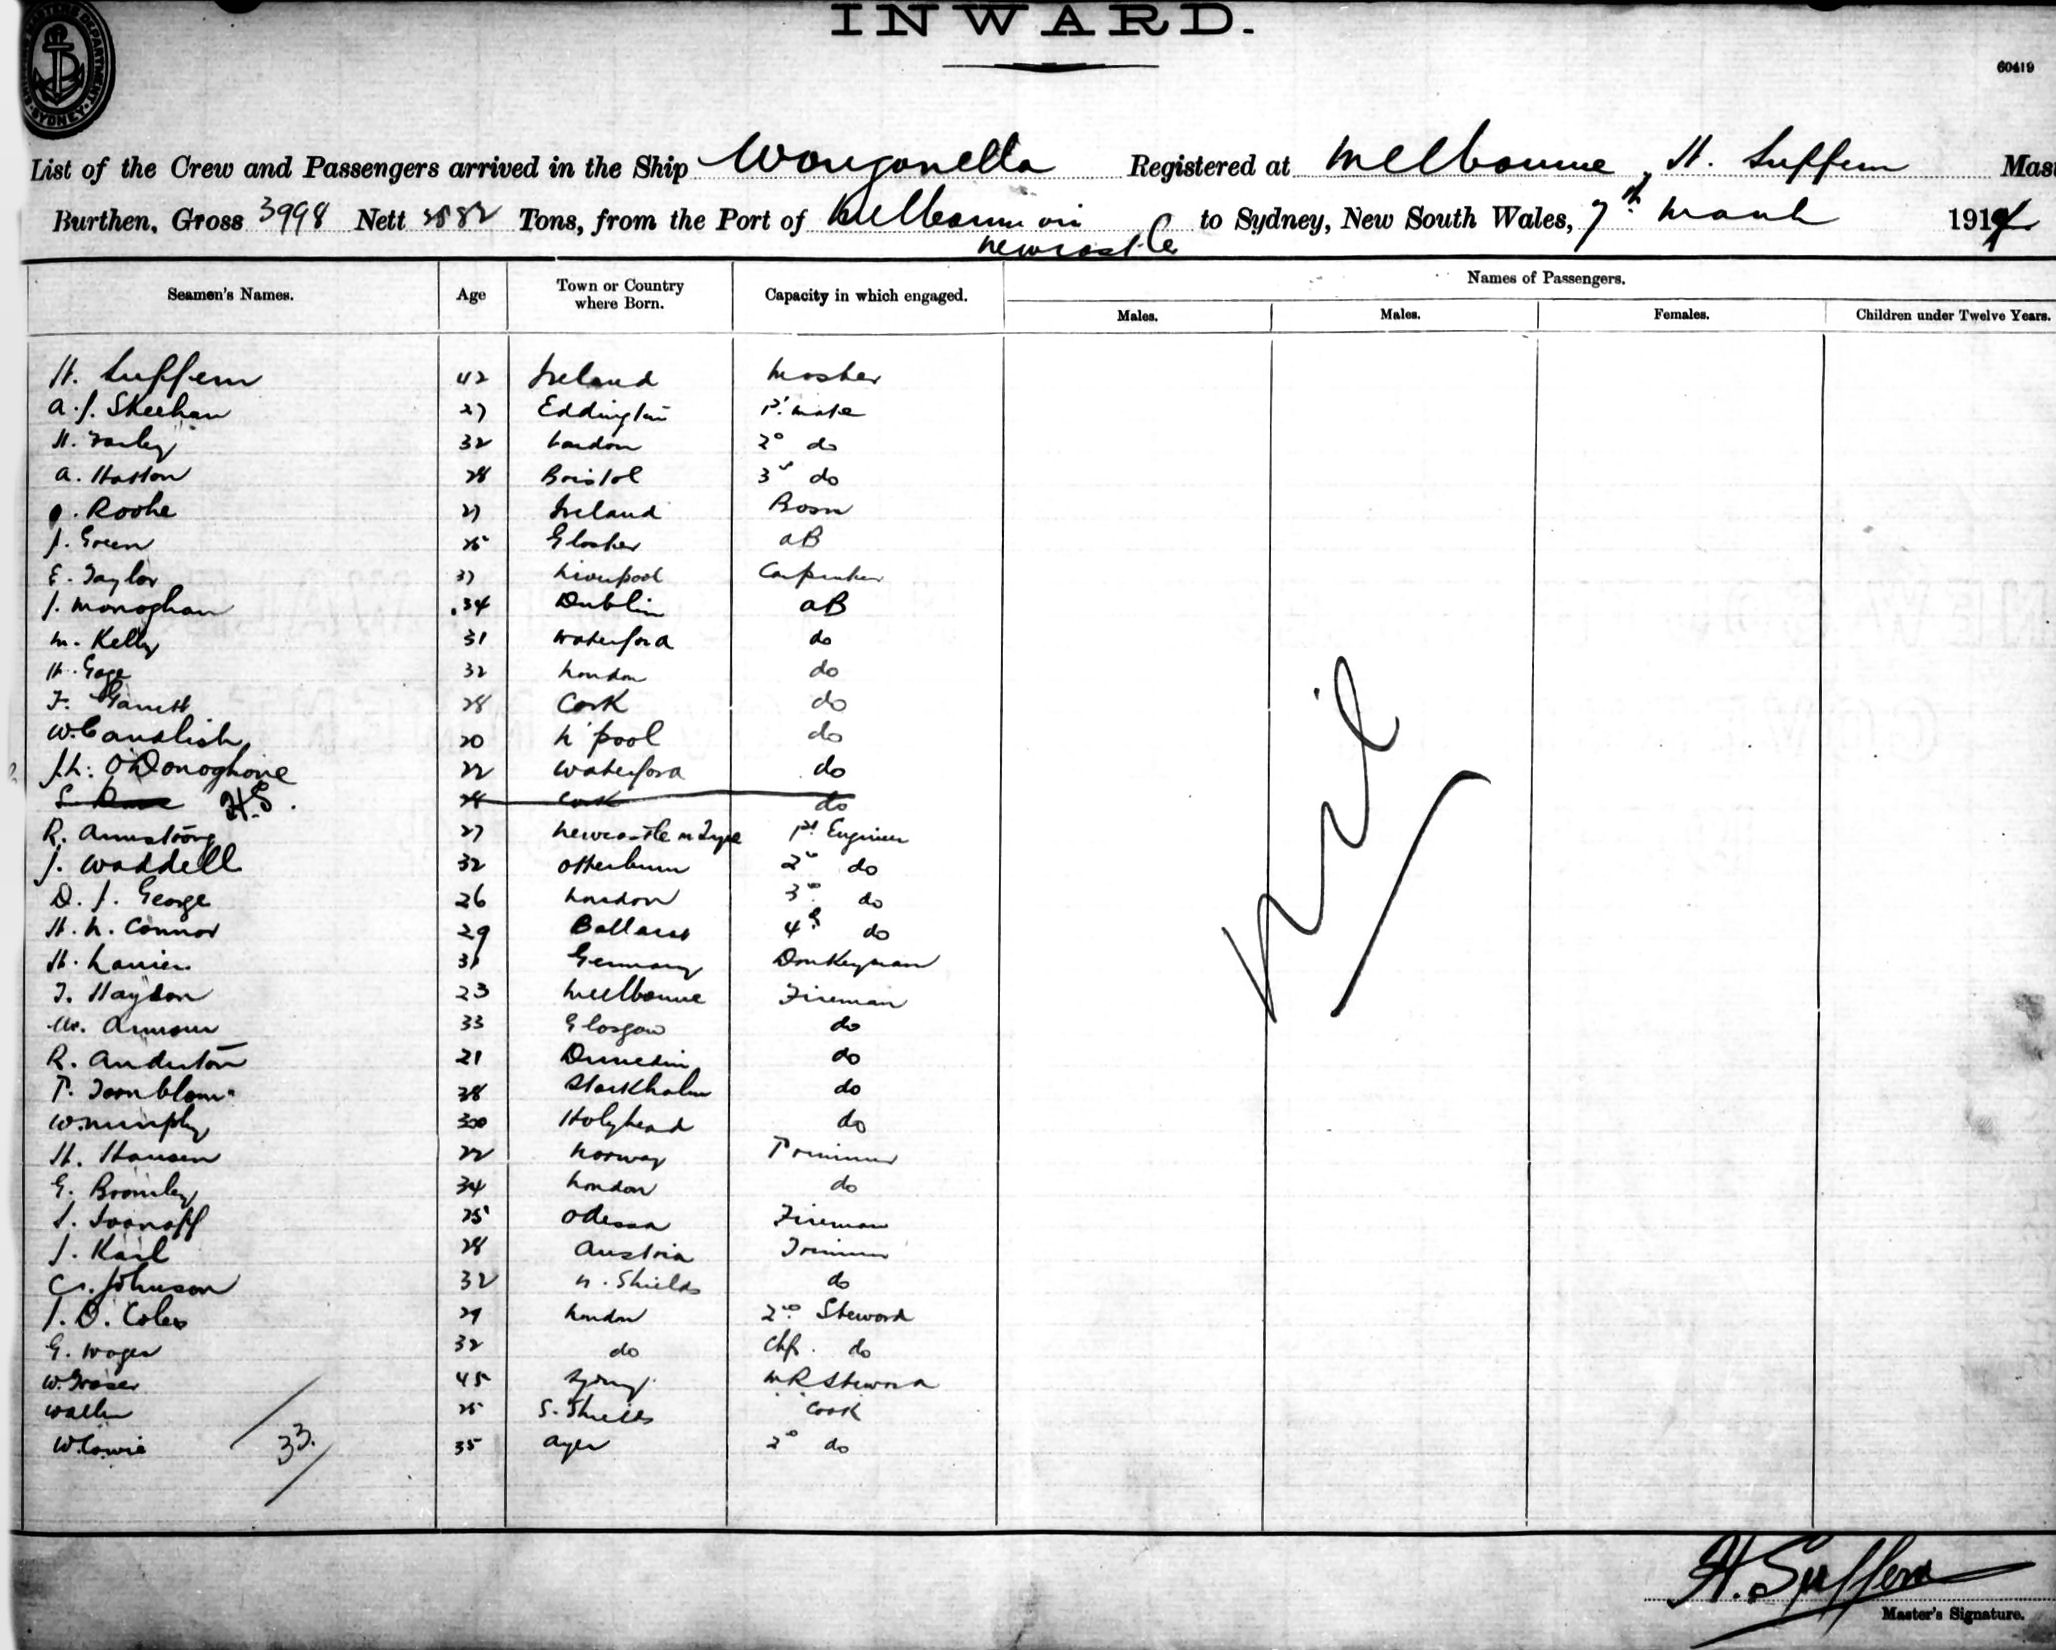 INWARD.
60419
SYDNEY
List of the Crew and Passengers arrived in the Ship Wonganella Registered at Melbourne, H. Suffern Mast
Burthen, Gross 3998 Nett 2582 Tons, from the Port of Melbourne via Newcastle to Sydney, New South Wales, 7th March 1914
Seamen's Names. Age Town or Country where Born. Capacity in which engaged. Names of Passengers.
Males. Males. Females. Children under Twelve Years.
H. Suffern 42 Ireland Master
A. J. Sheehan 27 Eddington 1st mate
H. 32 London 2nd do
A. Hatton 28 Bristol 3rd do
Roche 27 Ireland Bosn
J. Green 25 Gloster AB
E. Taylor 37 Liverpool Carpenter
J. Monoghan 34 Dublin AB
M. Kelly 31 Waterford do
H. Gage 32 London do
F. Garrett 28 Cork do
W. Cavalish 20 L'pool do
J. L. O'Donoghoue 22 Waterford do
H.S. 28 Cork do
R. Armstrong 27 Newcastle n Tyne 1st Engineer
J. Waddell 32 Otterburn 2nd do
D. J. George 26 London 3rd do
H. N. Connor 29 Ballarat 4th do
H. 31 Germany Donkeyman
T. Haydon 23 Melbourne Fireman
W. Armour 33 Glasgow do
R. Anderton 21 Dunedin do
T. Tornblom 38 Stockholm do
W. Murphy 30 Holyhead do
H. Hansen 22 Norway Trimmer
G. Bromley 34 London do
Ivanoff 25 Odessa Fireman
J. Karl 28 Austria Trimmer
C. Johnson 32 N. Shields do
J. O. Coles 29 London 2nd Steward
G. Wager 32 do Chf. do
W. Fraser 45 Sydney MR Steward
Waller 25 S. Shields Cook
W. Cowie 35 Ayer 2nd do
33
Nil
H. Suffern
Master's Signature.